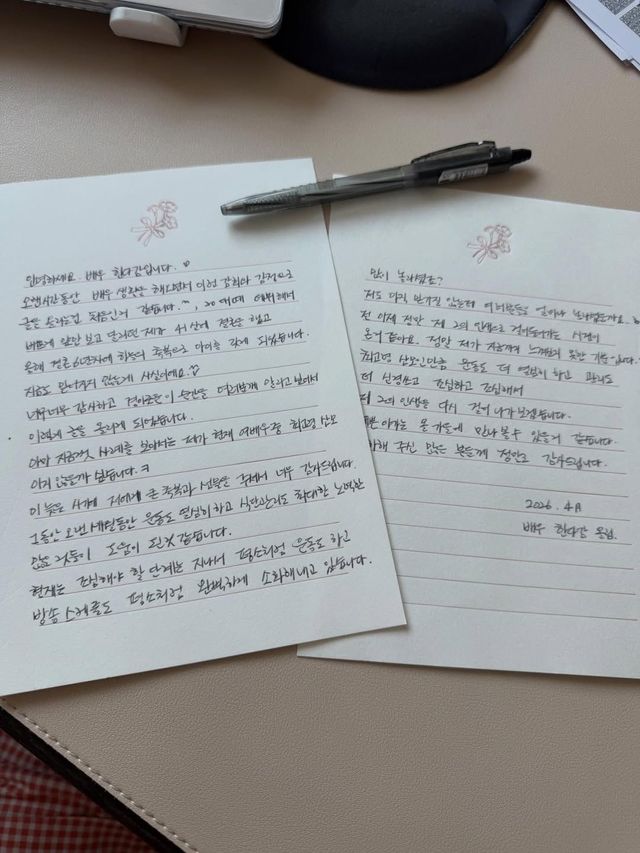 안녕하세요. 배우 한다감입니다.♡
오랜시간동안 배우 생활을 해오면서 이런 감회와 감정으로
글을 올리는건 처음인거 같습니다.^^, 20여년
앞만 보고 달리던 제가 41살에 결혼을 했고
올해 결혼 6년차에 하늘의 축복으로 아이를 갖게 되었습니다.
지금도 믿어지지 않는데 사실이에요.♡
너무너무 감사하고 경이로운 이 순간을 여러분께 알리고 싶어서
이렇게 글을 올리게 되었습니다.
아마 지금껏 사례를 보아서는 제가 현재 여배우중 최고령 산모
아닐까 싶습니다.ㅋ
이 늦은 시기에 저에게 큰 축복과 선물을 주셔서 너무 감사드립니다.
그동안 오랜 세월동안 운동도 열심히하고 식단관리도 최대한 노력한
많은 것들이 도움이 된것 같습니다.
현재는 조심해야 할 단계는 지나서 평소처럼 운동도 하고
방송스케줄도 평소처럼 완벽하게 소화해내고 있습니다.
많이 놀라셨죠?
저도 아직 안 믿기는데 여러분들은 얼마나 놀라셨을까요.
전 이제 정말 제 2의 인생으로 걸어들어가는 시점이
온거 같아요. 정말 제가 지금까지 느껴보지 못한 기분입니다.
최고령 산모인만큼 운동도 더 열심히 하고 관리도
더 신경쓰고 조심하고 조심해서
제 2의 인생을 다시 걸어 나가보겠습니다.
아가는 올 가을에 만나볼수 있을거 같습니다.
주신 많은 분들께 정말로 감사드립니다.
2026. 4月
배우 한다감 올림.